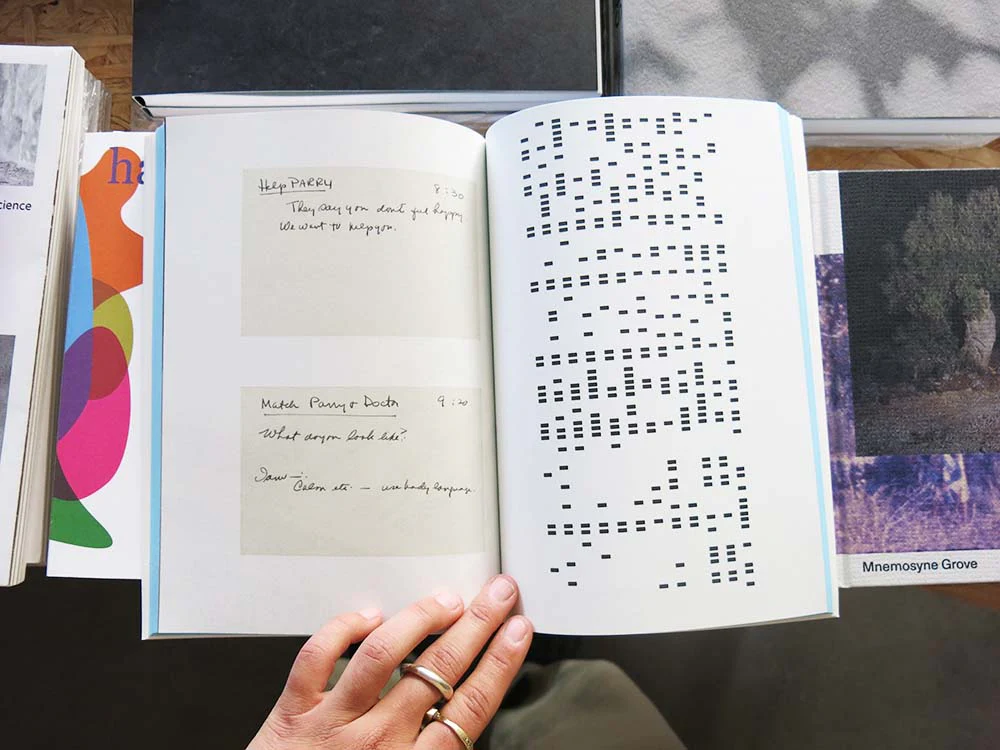 Help PARRY 8:30
They say you don't feel happy
We want to help you.
Match Parry & Doctor 9:20
What do you look like?
Calm etc. — use body language.
cience
ha
Mnemosyne Grove